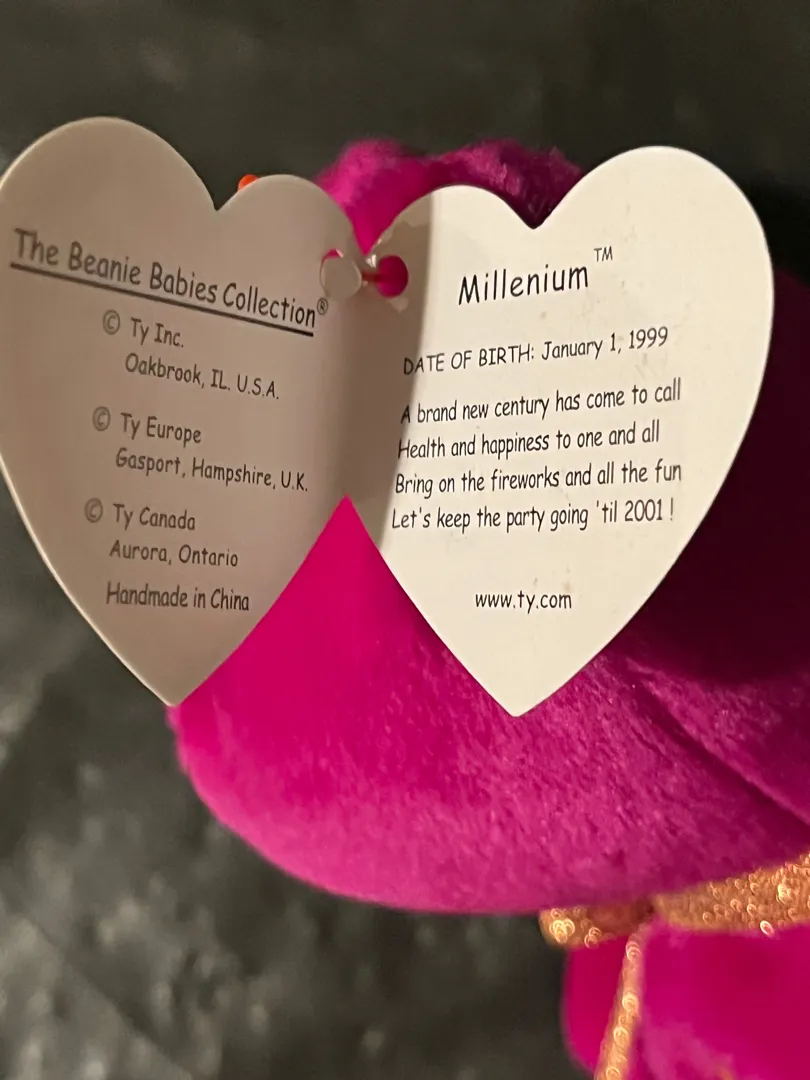 The Beanie Babies Collection®
© Ty Inc.
Oakbrook, IL. U.S.A.
© Ty Europe
Gasport, Hampshire, U.K.
© Ty Canada
Aurora, Ontario
Handmade in China
Millenium™
DATE OF BIRTH: January 1, 1999
A brand new century has come to call
Health and happiness to one and all
Bring on the fireworks and all the fun
Let's keep the party going 'til 2001 !
www.ty.com